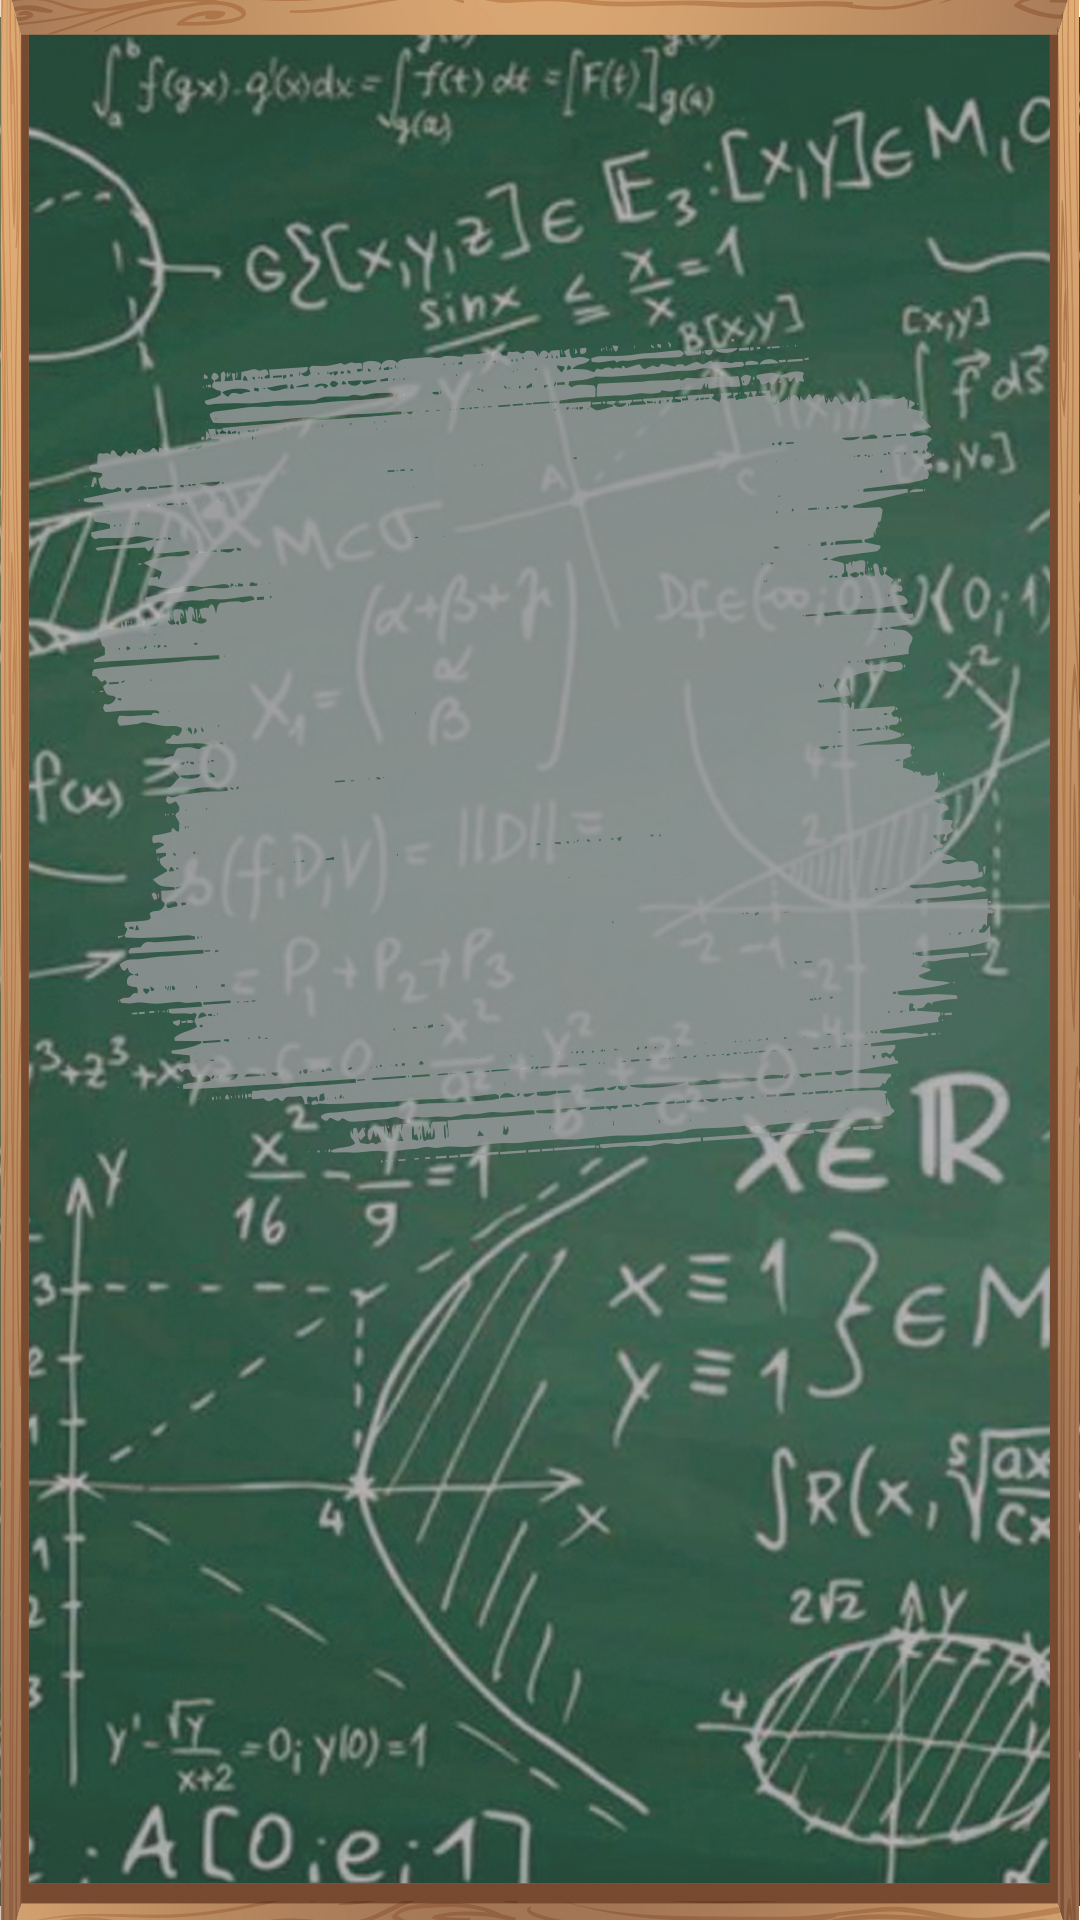 ∫ₐᵇ f(gx).g'(x)dx = ∫ f(t) dt = [F(t)]
g(a)
g(a)
G{[x,y,z] ∈ E₃: [x,y] ∈ M, 0
sinx/x ≤ x/x = 1
B[x,y]
[x,y]
∫ f ds
[x₀,y₀]
Y
A
C
M⊂σ
X₁ = (α+β+γ
α
β)
Df∈(∞;0)∪(0;1)
Y
x²
4
2
f(x) ≡ 0
s(f,D,V) = ||D|| =
-2 -1 1 2
= P₁+P₂+P₃
-2
-4
³+z³+xyz-6=0
x²/a² + y²/b² + z²/c² = 0
x²/16 - y²/9 = 1
X∈ℝ
Y
x ≡ 1
y ≡ 1 } ∈ M
3
2
1
4
x
∫R(x, ⁵√ax
cx
1
2
3
2√2
Y
4
y' - √y/x+2 = 0; y(0) = 1
: A[0;e;1]